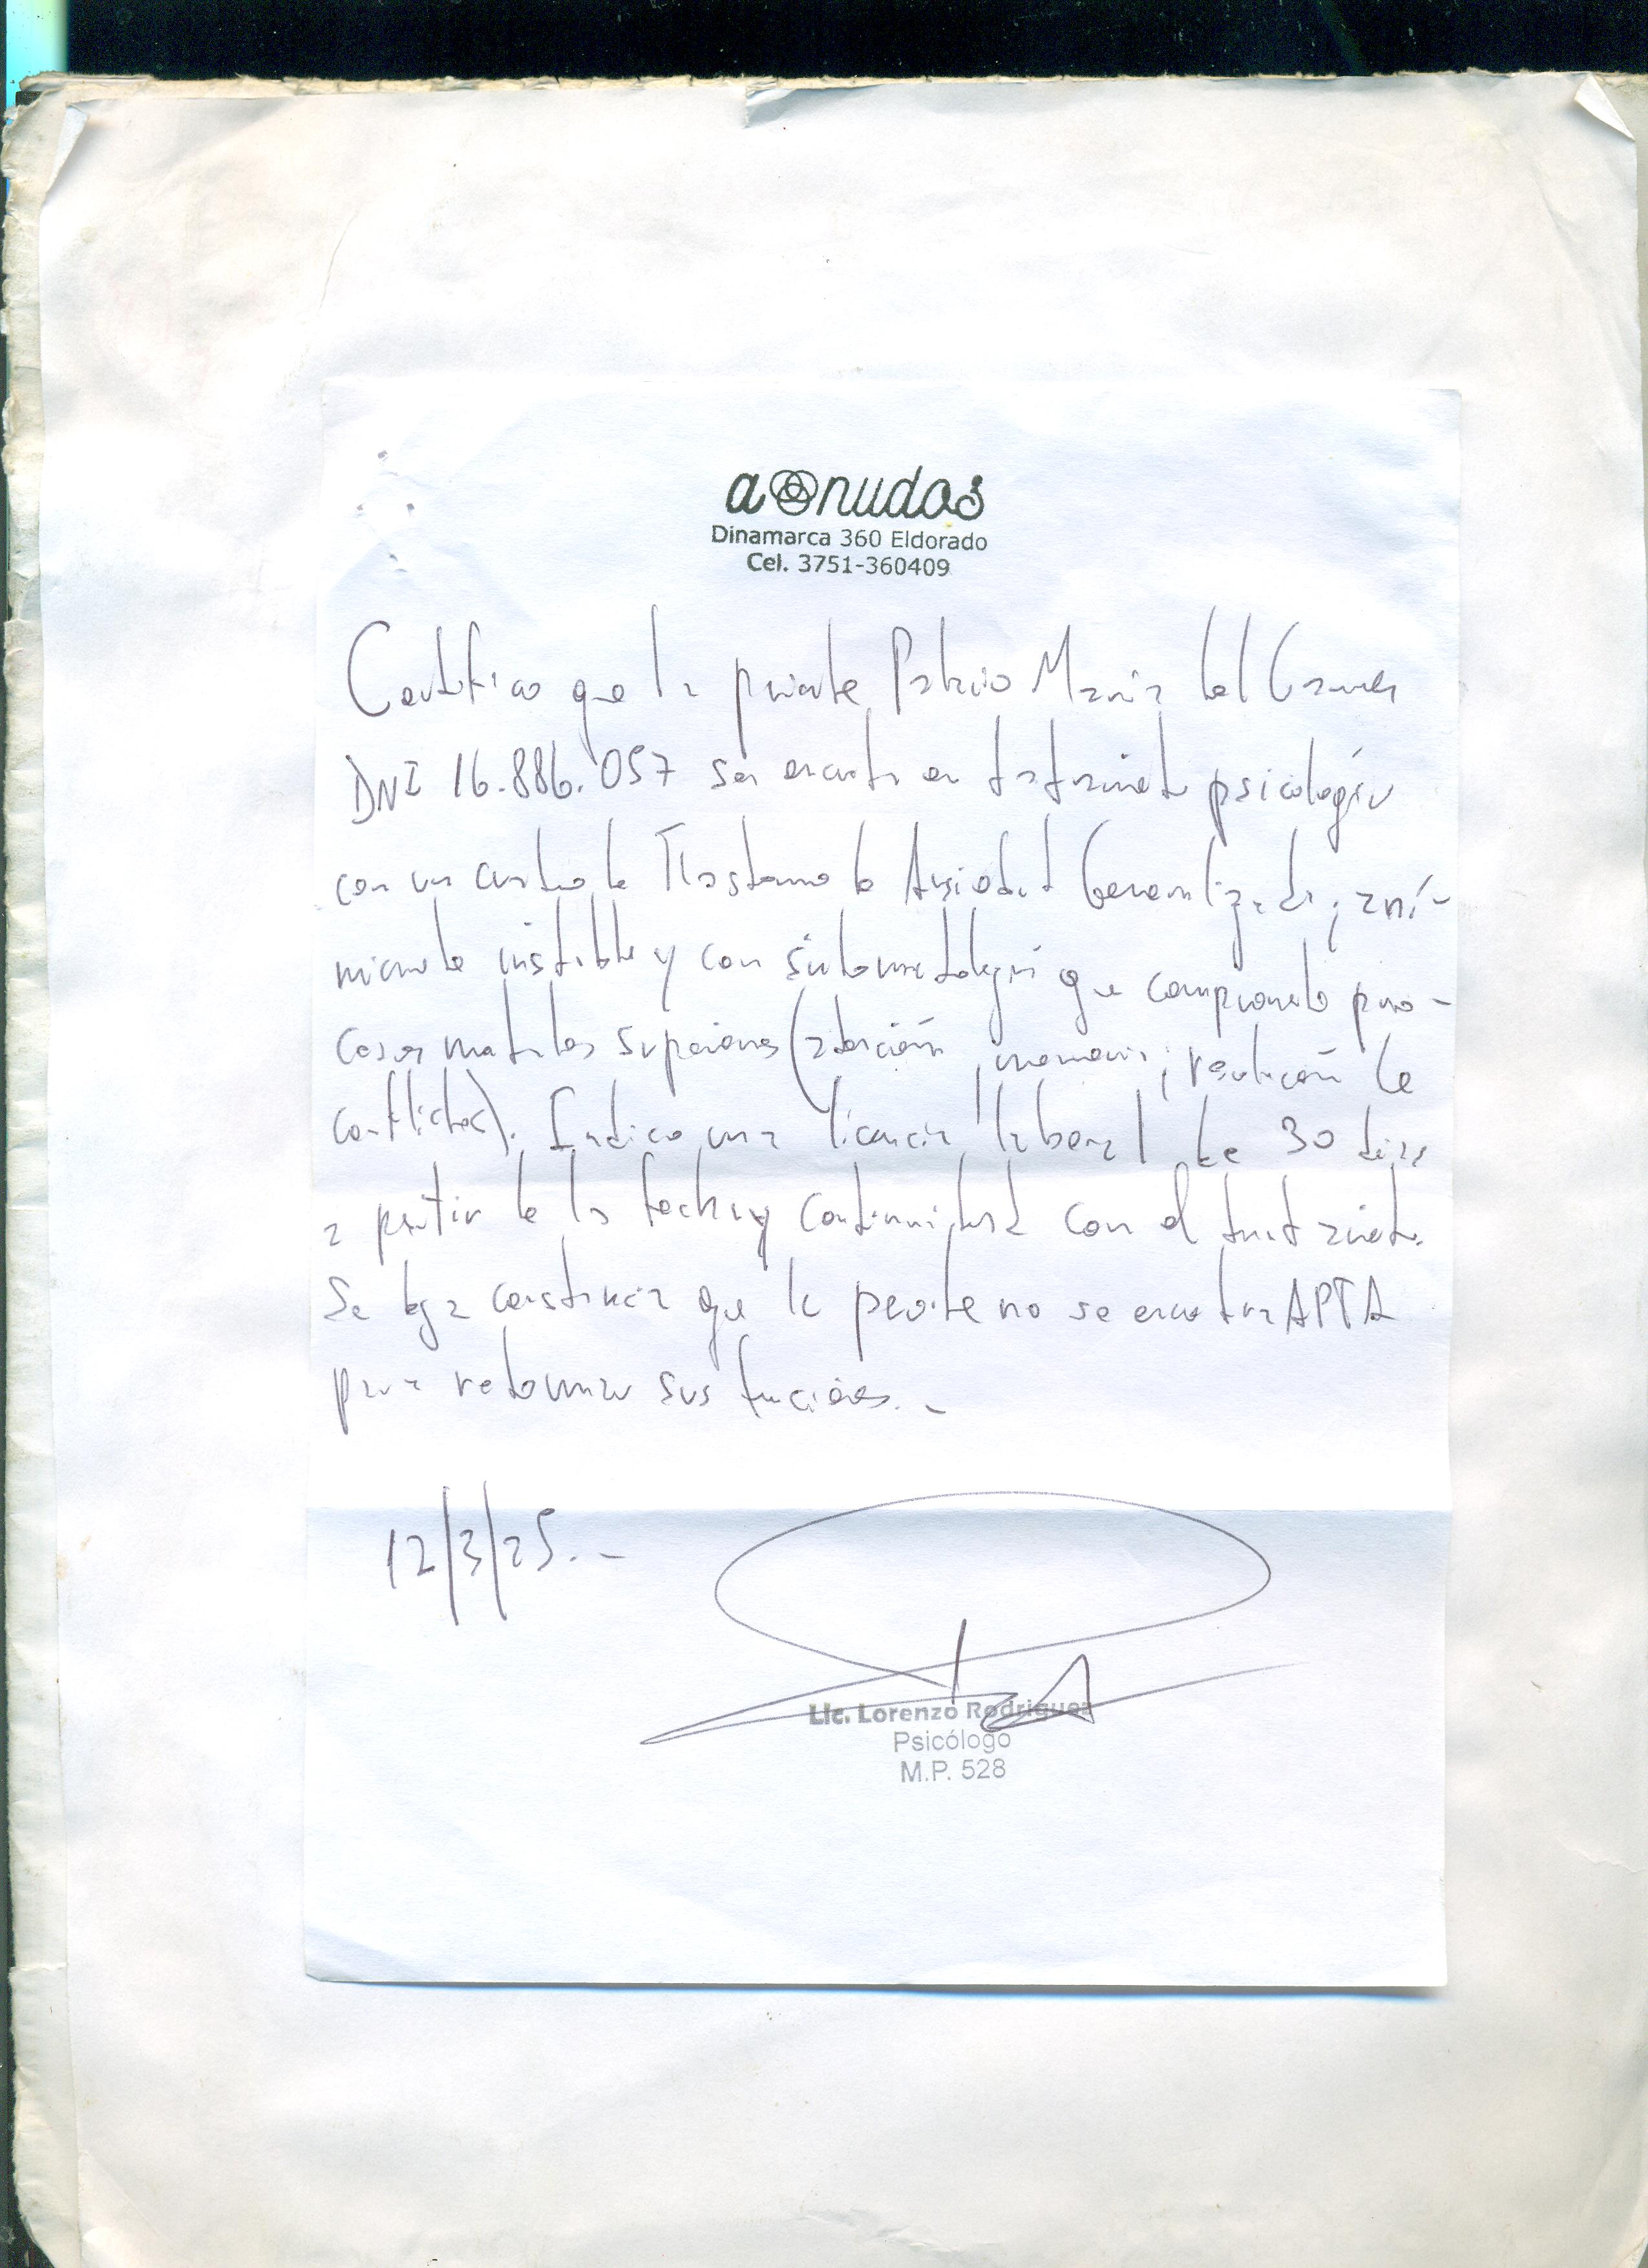 anudos
Dinamarca 360 Eldorado
Cel. 3751-360409
Certifico que la paciente María del Carmen
DNI 16.886.057 se encuentra en tratamiento psicológico
con un cuadro de Trastorno de Ansiedad Generalizada, aní-
micamente inestable y con sintomatología que compromete pro-
cesos mentales superiores (atención, memoria, resolución de
conflictos). Indico una licencia laboral de 30 días
a partir de la fecha y continuidad con el tratamiento.
Se deja constancia que la paciente no se encuentra APTA
para retomar sus funciones. -
12/3/25. -
Lic. Lorenzo Rodriguez
Psicólogo
M.P. 528